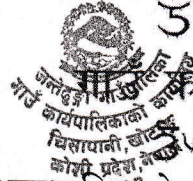 जन्तेढुङ्गा गाउँपालिका
गाउँ कार्यपालिकाको कार्यालय
चिसापानी, खोटाङ
कोशी प्रदेश, नेपाल